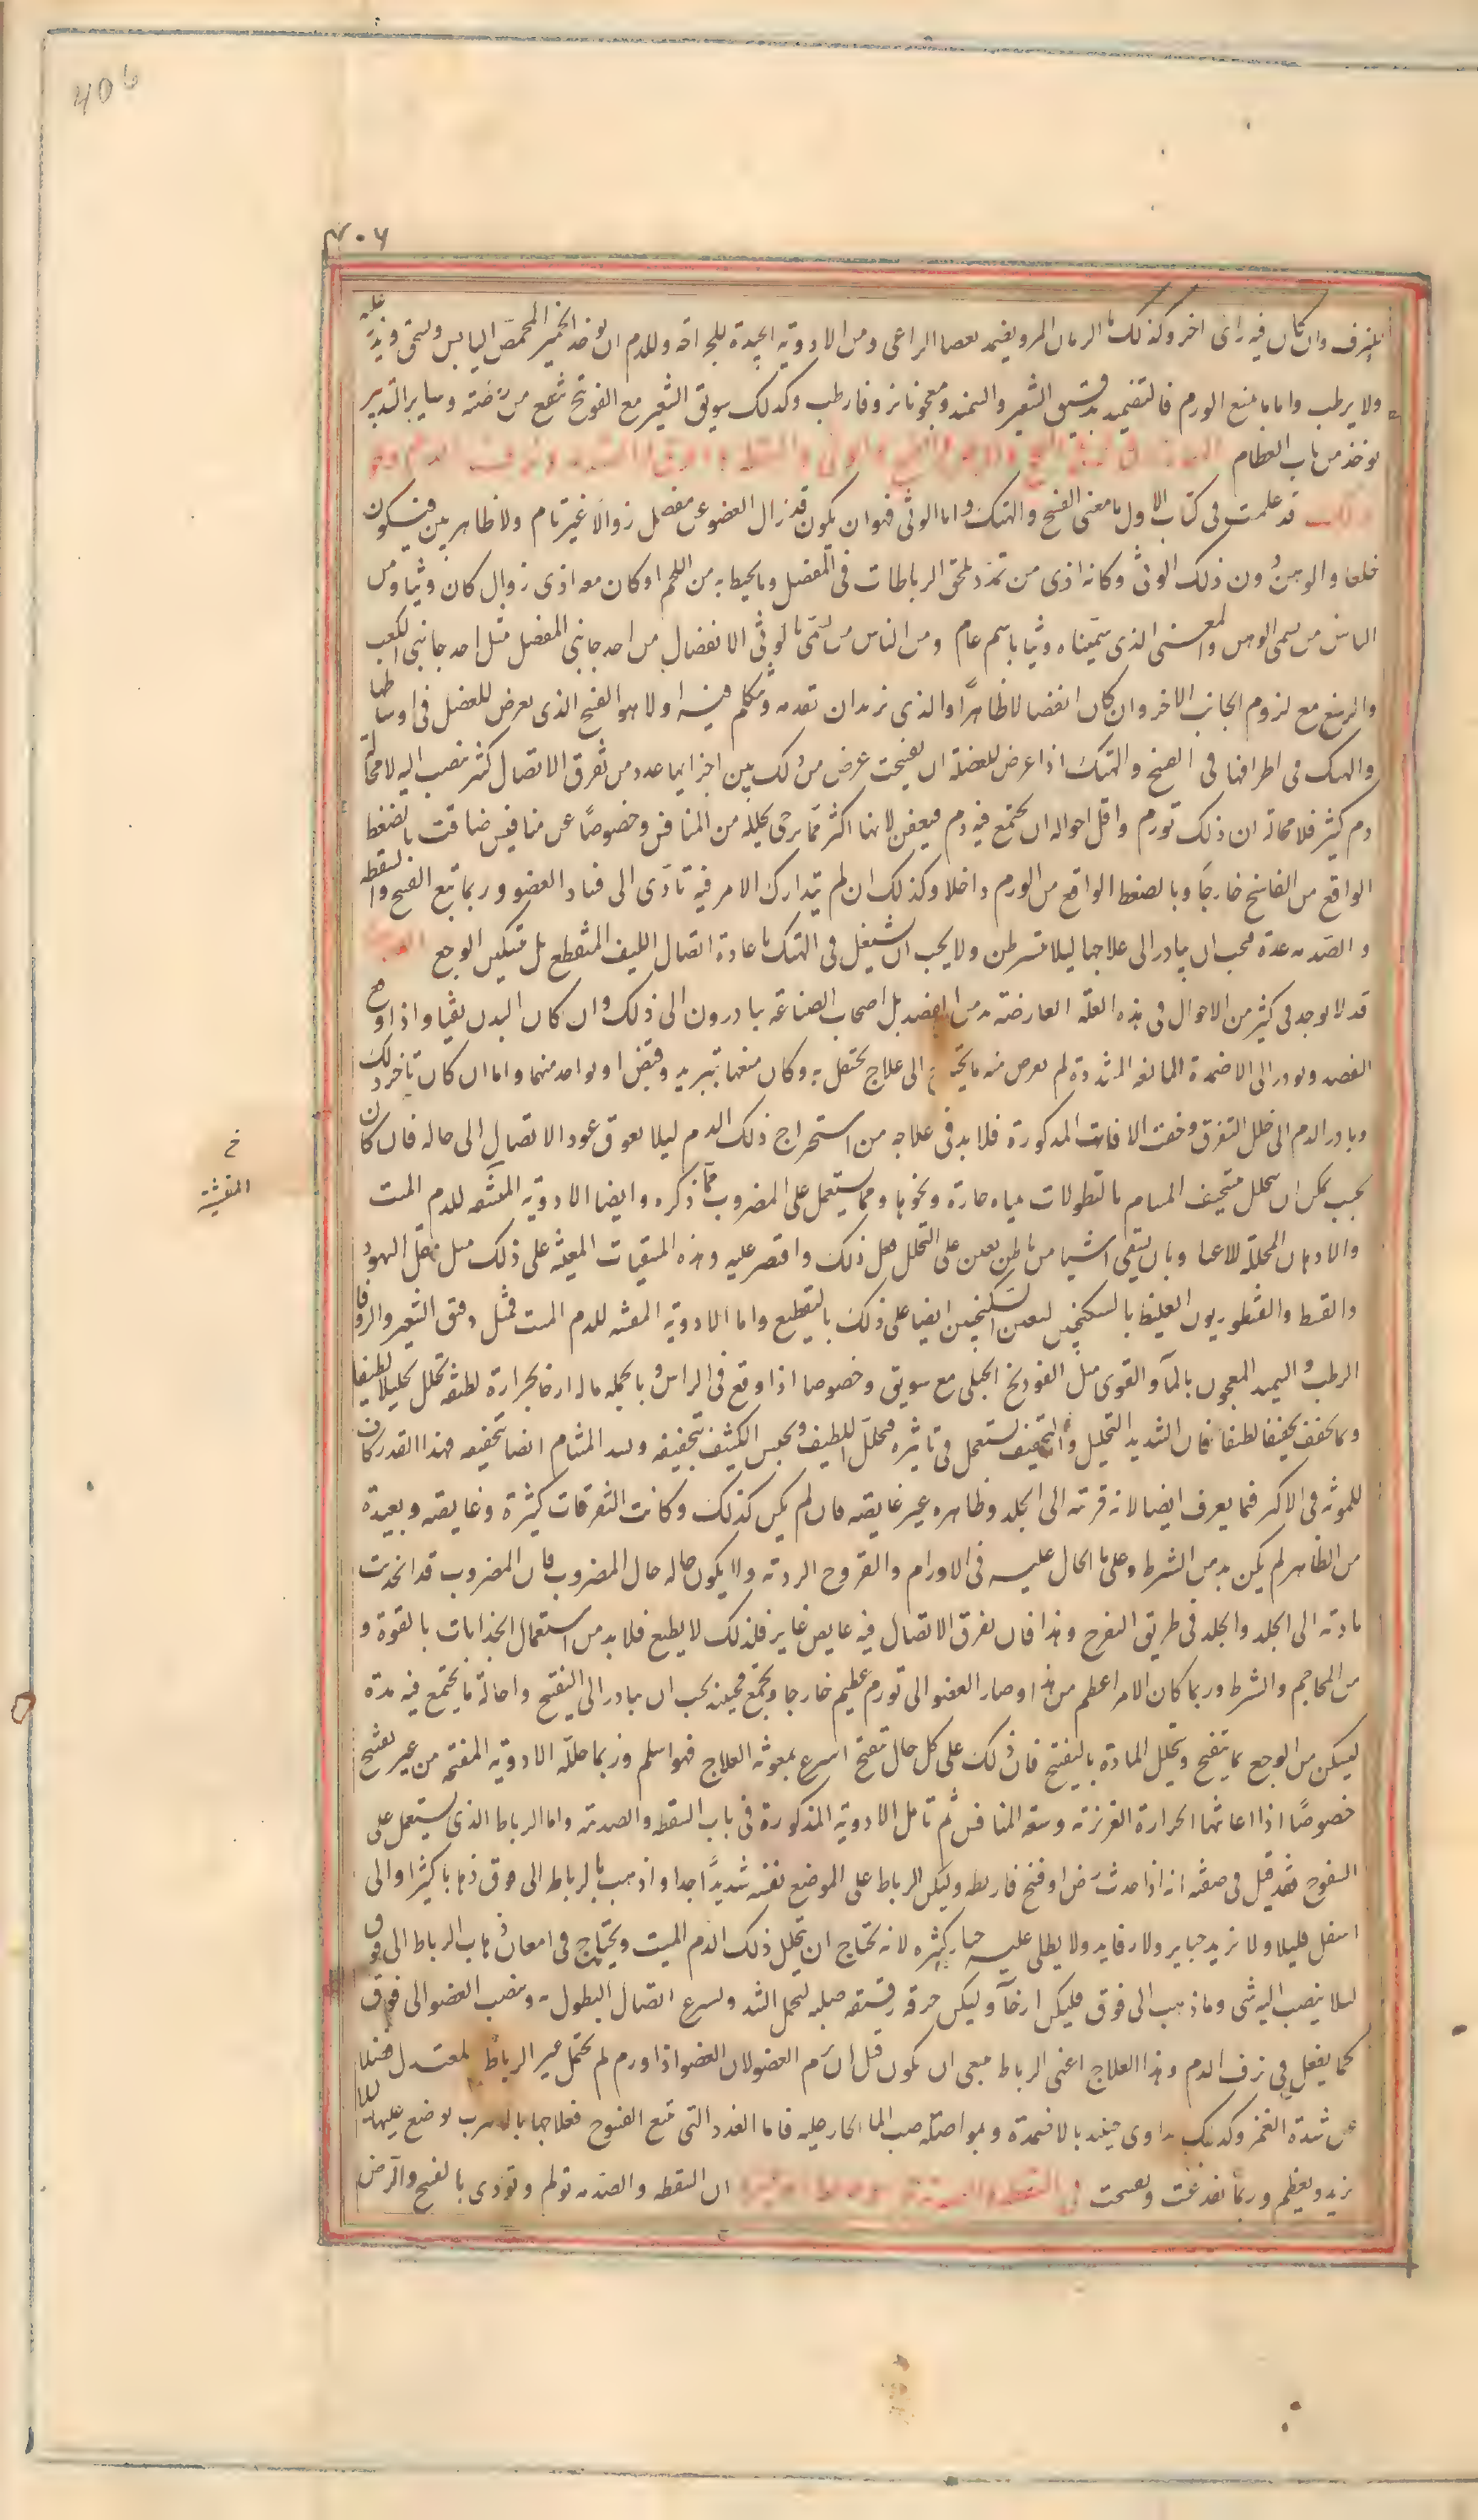 406
٤٠٦
للنزف وان كان فيه راى اخر وكذلك الرمان المر ويضمد بعصا الراعى ومن الادوية الجيدة للجراحة وللدم ان يوخذ الخمير المحمص اليابس ويسحق ويذر عليه
ولا يرطب واما ما يمنع الورم فالتضميد بدقيق الشعير والسمنة ومعجونا بزوفا رطب وكذلك سويق الشعير مع الفوتنج ينفع من رضته وساير التدبير
يوخذ من باب العظام
قد علمت فى كتاب الاول ما معنى الفسخ والهتك واما الوثى فهو ان يكون قد زال العضو عن مفصل زوالا غير تام ولا ظاهر بين فيكون
خلعا والوهن دون ذلك الوثى وكانه اذى من تمدد يلحق الرباطات فى المفصل وما يحيط به من اللحم او كان معه اذى زوال كان وثيا ومن
الناس من يسمى الوهن والمعنى الذى سميناه وثيا باسم عام ومن الناس من سمى بالوثى الانفصال من احد جانبى المفصل مثل احد جانبى الكعب
والرسغ مع لزوم الجانب الاخر وان كان انفصالا ظاهرا والذى نريد ان نقدمه ونتكلم فيه اولا هو الفسخ الذى يعرض للعضل فى اوساطها
والهتك فى اطرافها فى الفسخ والهتك اذا عرض للعضلة ان يفسخت عرض من ذلك بين اجزايها عدد من تفرق الاتصال كثير ينصب اليه لا محالة
دم كثير فلا محالة ان ذلك تورم واقل احواله ان يجتمع فيه دم فيعفن لانها اكثر مما يرجى تحلله من المنافس وخصوصا عن منافيس ضاقت بالضغط
الواقع من الفاسخ خارجا وبالضغط الواقع من الورم داخلا وكذلك ان لم يتدارك الامر فيه تادى الى فساد العضو وربما تبع الفسخ والسقطة
والصدمة غدة فيجب ان يبادر الى علاجها ليلا يتسرطن ولا يجب ان يشتغل فى الهتك باعادة اتصال الليف المنقطع بل بتسكين الوجع
قد لا يوجد فى كثير من الاحوال فى هذه العلة العارضة بد من الفصد بل اصحاب الصناعة يبادرون الى ذلك وان كان البدن نقيا واذا وقع
الفصد وبودر الى الاضمدة المانعة المشددة لم يعرض منه ما يحتج الى علاج يحتفل به وكان منعها بتبريد وقبض او بواحد منهما واما ان كان تاخر ذلك
وبادر الدم الى خلل التفرق وخفت الافات المذكورة فلا بد فى علاجه من استخراج ذلك الدم ليلا يعوق عود الاتصال الى حاله فان كان
بحيث يمكن ان يتحلل بتسخيف المسام بالنطولات مياه حارة ونحوها ومما يستعمل على المضروب مما ذكره وايضا الادوية المفشة للدم الميت
والادهان المحللة للاعيا وبان يسقى اشيا من باطن يعين على التحلل فعل ذلك واقتصر عليه وهذه المسقيات المعينة على ذلك مثل مقل اليهود
والقسط والقنطوريون الغليظ بالسكنجبين ليعين السكنجبين ايضا على ذلك بالتقطيع واما الادوية المفشة للدم الميت فمثل دقيق الشعير والزوفا
الرطب والسميد المعجون بالماء والقوى مثل الفوذنج الجبلى مع سويق وخصوصا اذا وقع فى الراس وبالجملة ماله ارخا بحرارة لطيفة تحلل تحليلا لطيفا
وما يجفف تجفيفا لطيفا فان الشديد التحليل والتجفيف يستعمل فى تاثيره فيحلل اللطيف ويحبس الكثيف بتجفيفه ويسد المسام ايضا بتجفيفه فهذا القدر كان
للموثه فى الاكثر فما يعرف ايضا لانه قريبة الى الجلد وظاهره غير غايصة فان لم يكن كذلك وكانت التفرقات كثيرة وغايصة وبعيدة
من الظاهر لم يكن بد من الشرط وعلى ما الحال عليه فى الاورام والقروح الردية ولا يكون حاله حال المضروب فان المضروب قد انجذبت
مادته الى الجلد والجلد فى طريق التفرح وهذا فان تفرق الاتصال فيه غايص غاير فلذلك لا يطيع فلا بد من استعمال الجذابات بالقوة و
من المحاجم والشرط وربما كان الامر اعظم من هذا وصار العضو الى تورم عظيم خارجا ويجتمع فحينئذ يجب ان يبادر الى التقيح واحالة ما يجتمع فيه مدة
ليسكن من الوجع بما يتقيح وتحلل المادة بالتفتح فان ذلك على كل حال يتقيح اسرع بمعونة العلاج فهو اسلم وربما حللته الادوية المفتحة من غير تقيح
خصوصا اذا اعانتها الحرارة الغريزية وسعة المنافس ثم تامل الادوية المذكورة فى باب السقطة والصدمة واما الرباط الذى يستعمل على
الفسوخ فقد قيل فى صفته انه اذا حدث رض او فسخ فاربطه وليكن الرباط على الموضع نفسه شديدا جدا واذهب بالرباط الى فوق ذهابا كثيرا والى
اسفل قليلا ولا تزيد جباير ولا رفايد ولا يطلى عليه جباير كثيرة لانه يحتاج ان يتحلل ذلك الدم الميت ويحتاج فى امعان ذهاب الرباط الى فوق
ليلا ينصب اليه شى وما ذهب الى فوق فليكن ارخا وليكن خرقه رقيقة صلبة لتحمل الشد ويسرع اتصال النطول به ونصب العضو الى فوق
كما يفعل فى نزف الدم وهذا العلاج اعنى الرباط ينبغى ان يكون قبل ان يرم العضو لان العضو اذا ورم لم يحتمل غير الرباط المعتدل فضلا
عن شدة الغمز وكذلك يداوى حينئذ بالاضمدة وبمواصلة صب الما الحار عليه فاما الغدد التى تتبع الفسوخ فعلاجها بالاسرب يوضع عليها ليلا
يزيد ويعظم وربما تفدغت وتفسحت
ان السقطة والصدمة تولم وتوذى بالفسخ والرض
خ
المفشية